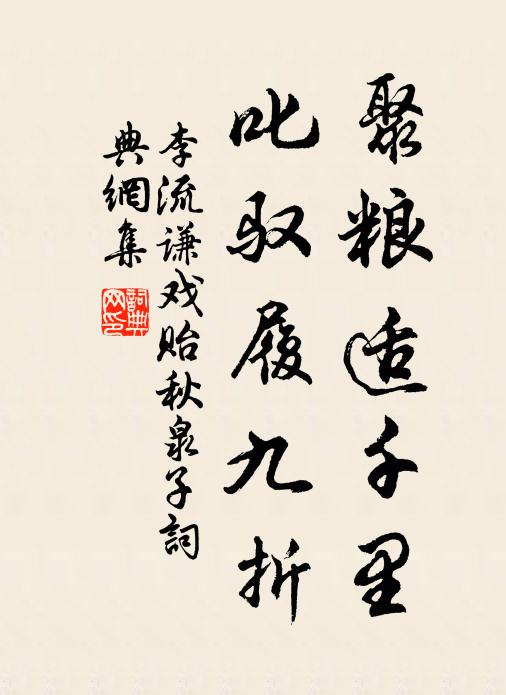 聚粮适千里
叱驭履九折
李流谦戏贻秋泉子詞
典網集
詞典
网印